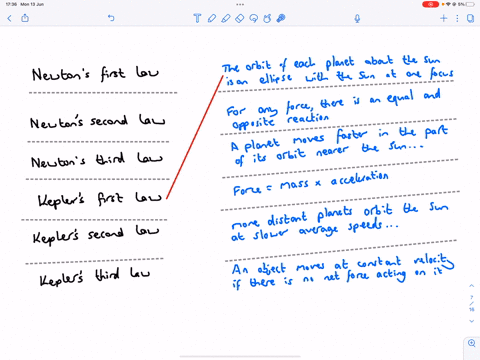 17:36 Mon 13 Jun
5%
Newton's first law
Newton's second law
Newton's third law
Kepler's first law
Kepler's second law
Kepler's third law
The orbit of each planet about the sun
is an ellipse with the sun at one focus
For any force, there is an equal and
opposite reaction
A planet moves faster in the part
of its orbit nearer the sun...
Force = mass x acceleration
more distant planets orbit the sun
at slower average speeds...
An object moves at constant velocity
if there is no net force acting on it
7
/
16